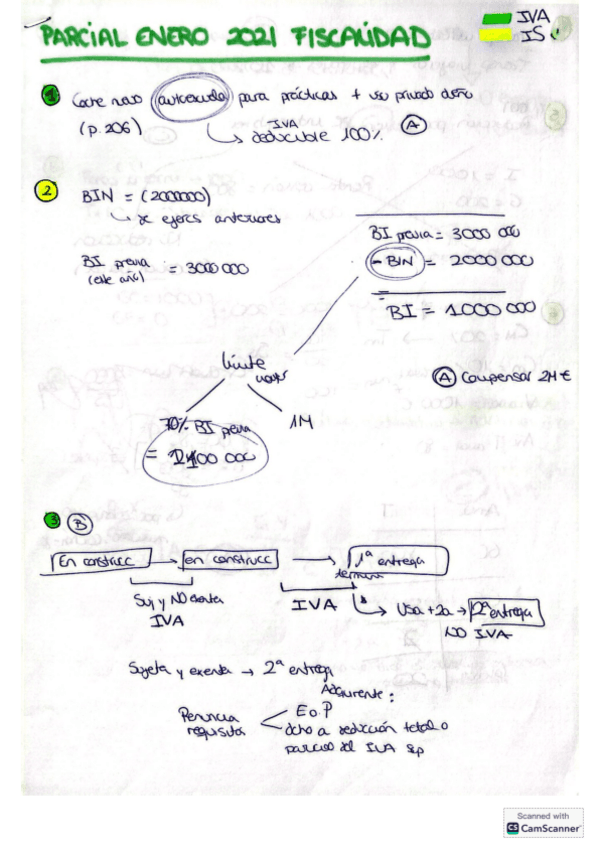 IVA
PARCIAL ENERO 2021 FISCALIDAD
IS
1 Coche nuevo autoescuela para prácticas + uso privado dueño
(p. 206) IVA deducible 100% (A)
2 BIN = (2000000)
de ejercs anteriores
BI previa (este año) = 3000 000
BI previa = 3000 000
- BIN = 2000 000
= BI = 1000 000
límite
(A) Compensar 2M €
70% BI previa 1M
= 2100 000
3 (B)
En construcc en construcc 1ª entrega
termin
Suj y NO exenta IVA
IVA
Usa + 2a → 2ª entrega
NO IVA
Sujeta y exenta → 2ª entrega
Adquirente:
Renuncia requisitos
E o P
dcho a deducción total o
parcial del IVA sop
Scanned with
CS CamScanner